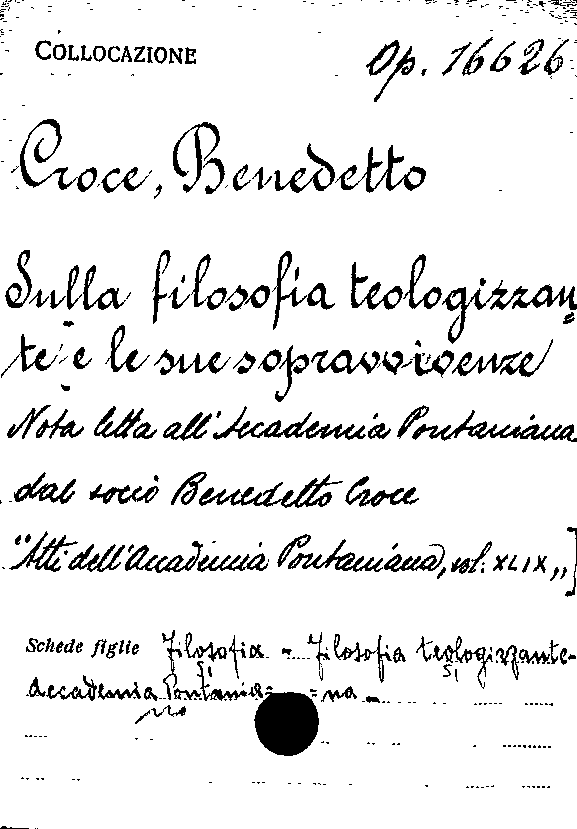 COLLOCAZIONE Op. 16626
Croce, Benedetto
Sulla filosofia teologizzan=
te e le sue sopravvivenze
Nota letta all'Accademia Pontaniana
dal socio Benedetto Croce
"Atti dell'Accademia Pontaniana, vol. XLIX,,]
Schede figlie Filosofia - Filosofia teologizzante-
si si
Accademia Pontania= =na -
no